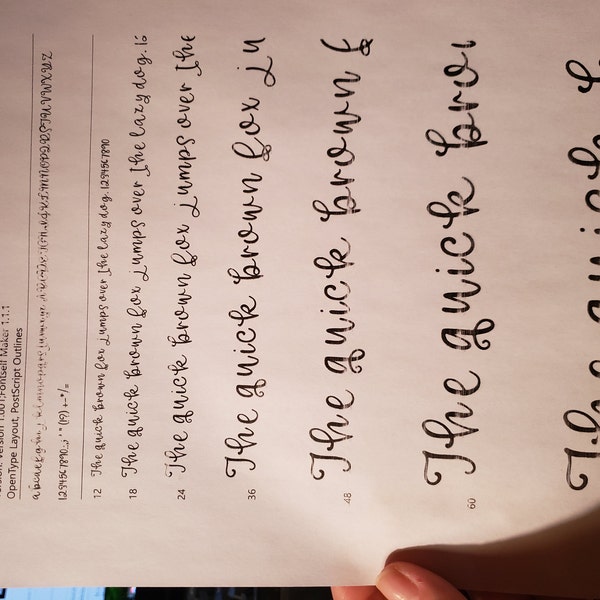 Version 1.001;Fontself Maker 1.1.1
OpenType Layout, PostScript Outlines
1234567890.:,; ' " (!?) +-*/=
12 The quick brown fox jumps over the lazy dog. 1234567890
18 The quick brown fox jumps over the lazy dog. 12
24 The quick brown fox jumps over the
36 The quick brown fox ju
48 The quick brown f
60 The quick bro
The quick b